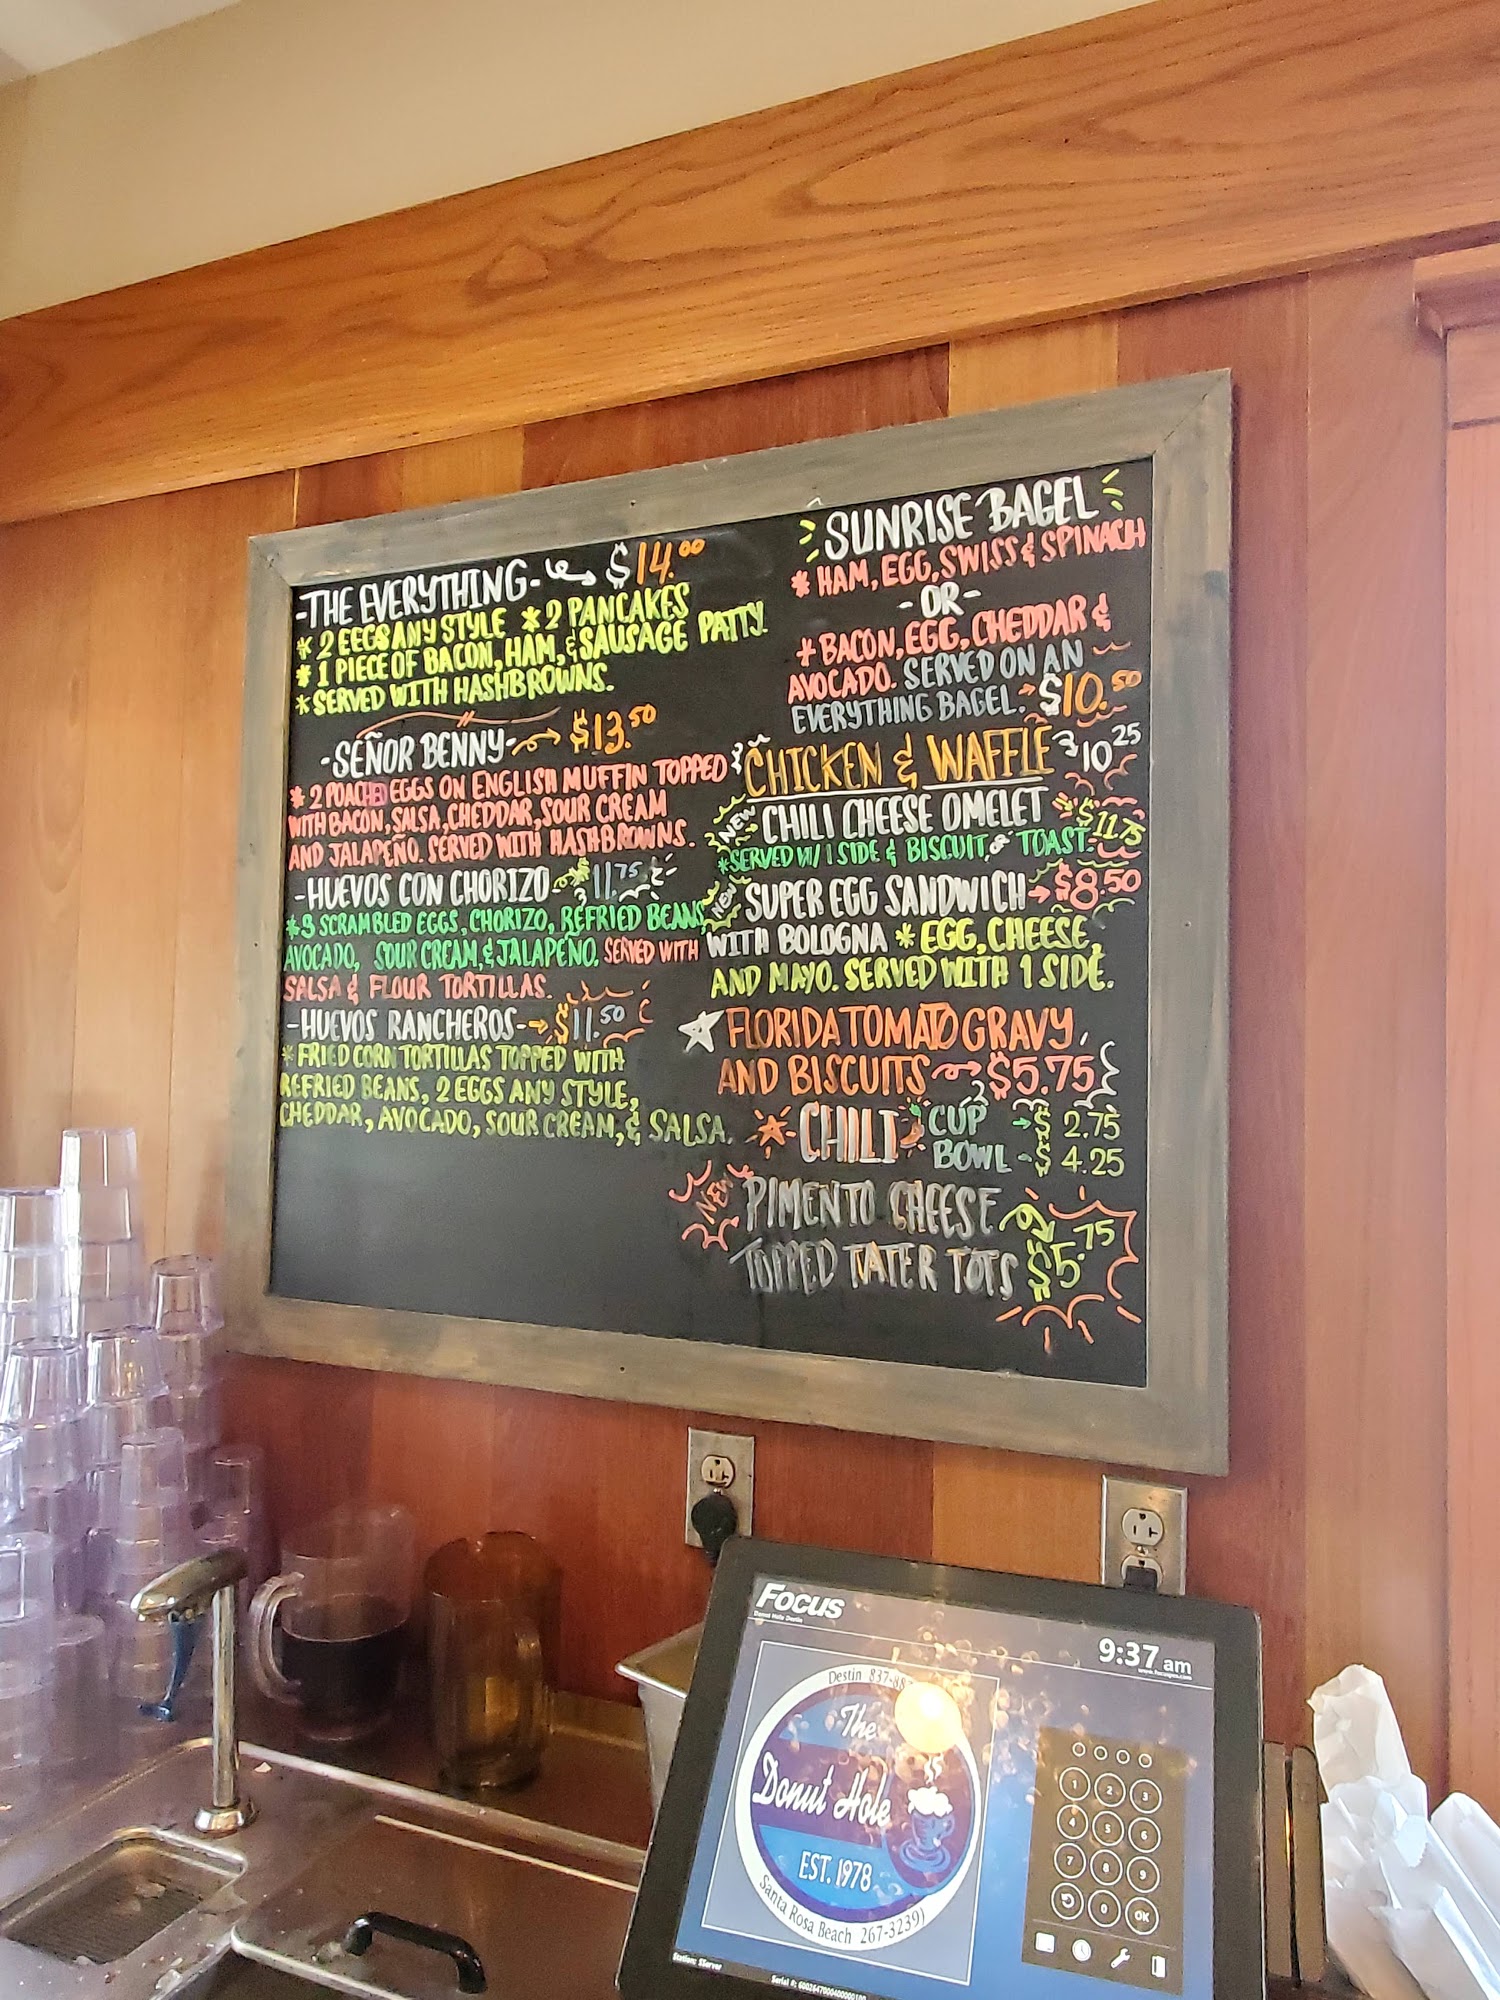 -THE EVERYTHING- $14.00
* 2 EEGS ANY STYLE * 2 PANCAKES
* 1 PIECE OF BACON, HAM, & SAUSAGE PATTY.
* SERVED WITH HASHBROWNS.
-SEÑOR BENNY- $13.50
* 2 POACHED EGGS ON ENGLISH MUFFIN TOPPED
WITH BACON, SALSA, CHEDDAR, SOUR CREAM
AND JALAPEÑO. SERVED WITH HASHBROWNS.
-HUEVOS CON CHORIZO- $11.75
* 3 SCRAMBLED EGGS, CHORIZO, REFRIED BEANS,
AVOCADO, SOUR CREAM, & JALAPEÑO. SERVED WITH
SALSA & FLOUR TORTILLAS.
-HUEVOS RANCHEROS- $11.50
* FRIED CORN TORTILLAS TOPPED WITH
REFRIED BEANS, 2 EGGS ANY STYLE,
CHEDDAR, AVOCADO, SOUR CREAM, & SALSA.
SUNRISE BAGEL
* HAM, EGG, SWISS & SPINACH
-OR-
* BACON, EGG, CHEDDAR &
AVOCADO. SERVED ON AN
EVERYTHING BAGEL. $10.50
CHICKEN & WAFFLE 10.25
NEW CHILI CHEESE OMELET $11.75
*SERVED W/ 1 SIDE & BISCUIT, or TOAST.
NEW SUPER EGG SANDWICH $8.50
WITH BOLOGNA * EGG, CHEESE,
AND MAYO. SERVED WITH 1 SIDE.
FLORIDA TOMATO GRAVY
AND BISCUITS $5.75
CHILI CUP $ 2.75
BOWL $ 4.25
NEW PIMENTO CHEESE
TOPPED TATER TOTS $5.75
FOCUS
Donut Hole Destin
9:37 am
www.focuspos.com
Destin 837-88
The
Donut Hole
EST. 1978
Santa Rosa Beach 267-3239
1 2 3
4 5 6
7 8 9
0 OK
Station: SServer
Serial #: